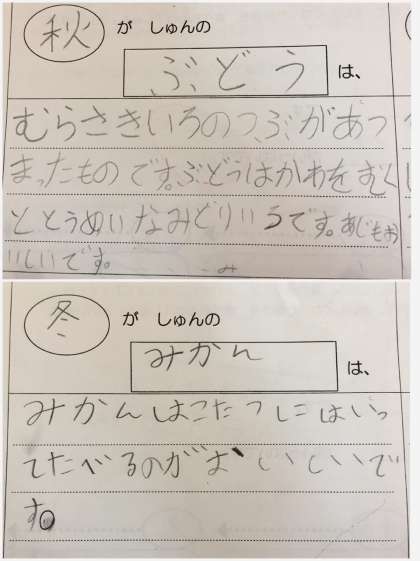 秋 が しゅんの
ぶどう は、
むらさきいろのつぶがあつ
まったものです。ぶどうはかわをむく
ととうめいなみどりいろです。あじもお
いしいです。
冬 が しゅんの
みかん は、
みかんはこたつにはいっ
てたべるのがおいしいで
す。